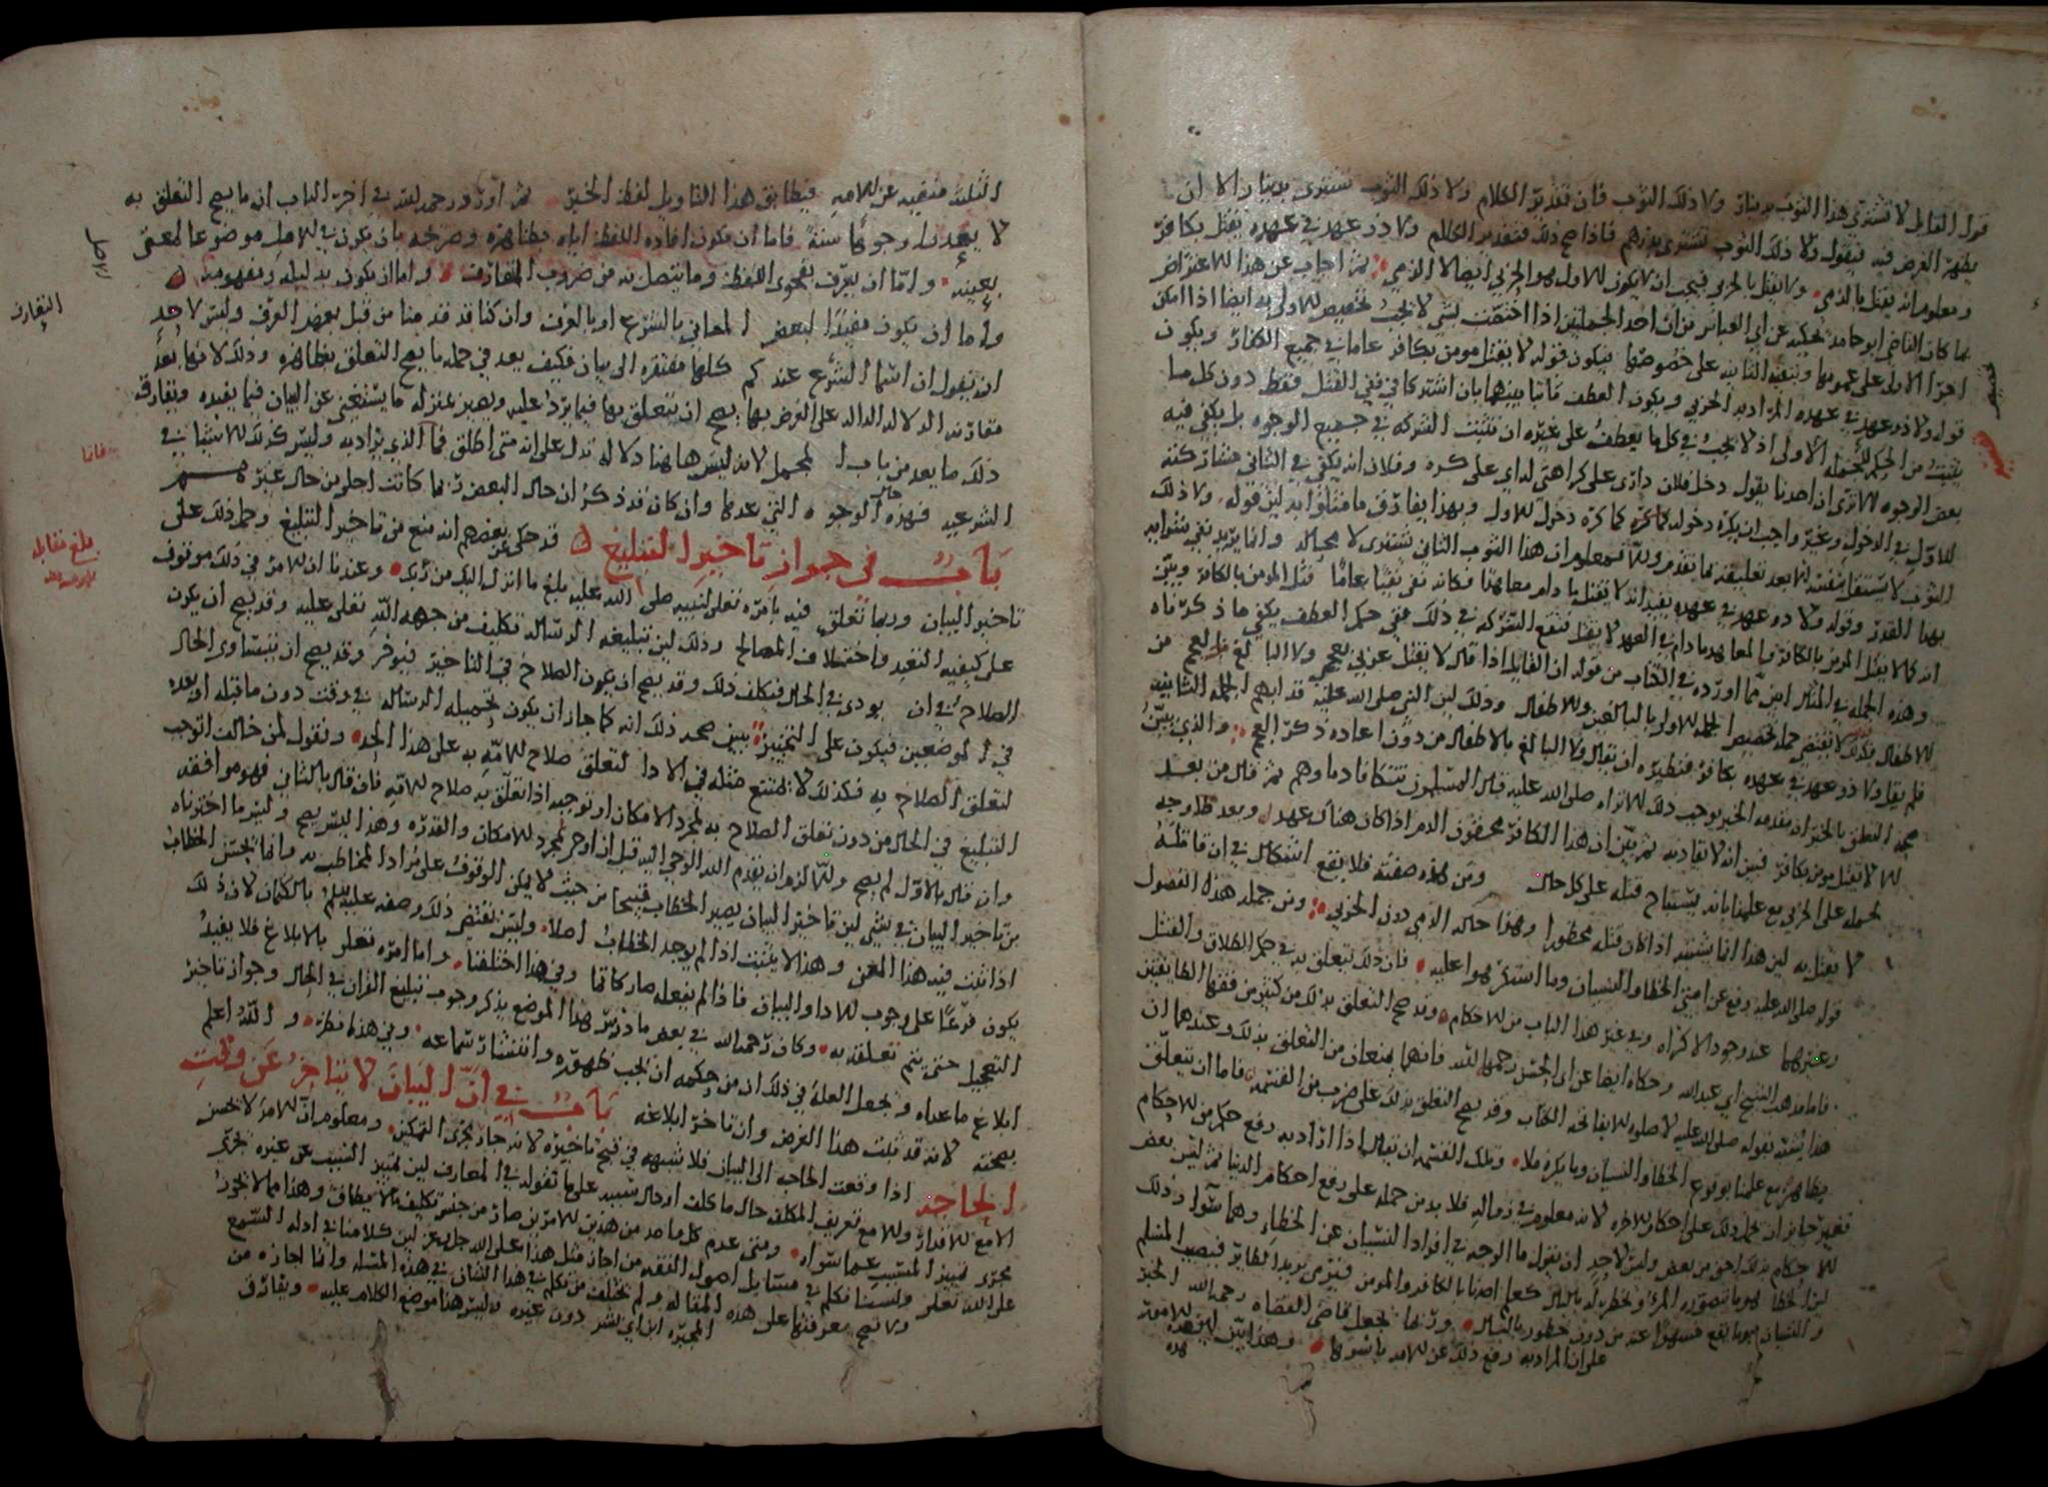 قول القائل لا تشترى هذا الثوب بدينار ولا ذلك الثوب فان تقدير الكلام ولا ذلك الثوب تشترى بدينار الا ان
يظهر الغرض فيه فيقول ولا ذلك الثوب تشترى بدرهم فاذا صح ذلك فتقدير الكلام ولا ذو عهد في عهده يقتل بكافر
ومعلوم انه يقتل بالذمي ولا يقتل بالحربي فيجب ان لا يكون الاول هو الحربي ايضا لا الذمي ثم اجاب عن هذا الاعتراض
بما كان القاضي ابو حامد يحكيه عن ابي العباس من ان احد الجملتين اذا اختصت بشي لا يجب تخصيص الاولى به ايضا اذا امكن
اجرا الاولى على عمومها وتبقيه الثانيه على خصوصها فيكون قوله لا يقتل مومن بكافر عاما في جميع الكفار ويكون
قوله ولا ذو عهد في عهده المراد به الحربي ويكون العطف ثابتا بينهما بان اشتركا في نفي القتل فقط دون كل ما
يثبت من الحكم للجمله الاولى اذ لا يجب في كل ما يعطف على غيره ان تثبت الشركه في جميع الوجوه بل يكفي فيه
بعض الوجوه الا ترى ان احدنا يقول دخل فلان داري على كراهتي لداي على كره وفلان انه يكفي في الثاني مشاركته
للاول في الدخول وغير واجب ان يكره دخوله كما كره دخول الاول وبهذا يفارق ما مثلوا به لان قوله ولا ذلك
الثوب لا يستقل بنفسه الا بعد تعليقه بما تقدم ولما فمعلوم ان هذا الثوب الثاني تشترى لا محاله وانما يريد نفي شوابه
بهذا القدر وقوله ولا ذو عهد في عهده يفيد انه لا يقتل ما دام معاهدا فكانه نفى نفيا عاما قتل المومن بالكافر وبين
انه كما لا يقتل المومن بالكافر فالمعاهد ما دام في العهد لا يقتل فتقع الشركه في ذلك ففي حكم العطف يكفي ما ذكرناه
وهذه الجمله في المثال ابين مما اورده في الكتاب من قوله ان القايل اذا قال لا يقتل عربي بعجمي ولا البالغ من العجم من
الاطفال فذلك لا يقتضي حمله تخصيص الجمله الاولى بالبالغين والاطفال وذلك لان النبي صلى الله عليه قد ابهم الجمله الثانيه
فلم يقل ولا ذو عهد في عهده بكافر فنظيره ان يقال ولا البالغ بالاطفال من دون اعاده ذكر العجم والذي يبين
صحه التعلق بالخبر ان مقدمه الخبر يوجب ذلك الا تراه صلى الله عليه قال المسلمون تتكافا دماوهم ثم قال من بعد
الا لا يقتل مومن بكافر فبين انه لا يقاد به ثم بين ان هذا الكافر محقون الدم اذا كان هناك عهد وبعد فلا وجه
لحمله على الحربي مع علمنا بانه يستباح قتله على كل حال ومن هذه صفته فلا يقع اشكال في ان قاتله
لا يقتل به لان هذا انما يشتبه اذا كان قتله محظورا وهذا حال الذمي دون الحربي ومن جمله هذه الفصول
قوله صلى الله عليه رفع عن امتي الخطا والنسيان وما استكرهوا عليه فان ذلك تعلق به في حكم الطلاق والقتل
وغيرهما عند وجود الاكراه وفي غير هذا الباب من الاحكام وقد صح التعلق بذلك من كثير من فقها الطايفتين
فاما مذهب الشيخ ابي عبد الله وحكاه ايضا عن ابي الحسن رحمهما الله فانهما يمنعان من التعلق بذلك وعندهما ان
هذا يشبه بقوله صلى الله عليه لا صلوه الا بفاتحه الكتاب وقد يصح التعلق بذلك على ضرب من القسمه فاما ان يتعلق
بظاهره مع علمنا بوقوع الخطا والنسيان وما يكره فلا وتلك القسمه ان يقال اذا اراد به رفع حكم من الاحكام
فغير جايز ان يحمل ذلك على احكام الاخره لانه معلوم في زماله فلا بد من حمله على رفع احكام الدنيا ثم ليس بعض
الاحكام بذلك احق من بعض وليس لاحد ان يقول ما الوجه في افراد النسيان عن الخطا وهما سوا وذلك
لان الخطا هو ما يقصد المرء ويخطر له بالبال كمعامله اصابه الكافر والمومن فيرمي يريد الطاير فيصيب المسلم
والنسيان هو ما يقع فسهوا عنه من دون خطور بالبال وربما يجعل قاضي القضاه رحمه الله الخبر
على ان المراد به رفع ذلك عن الامه باسرها وهذا ابين لان هذه الامور
هذه
الثلاث منفيه عن الامه فيطابق هذا التاويل لفظ الخبر ثم اورد رحمه الله في اخر الباب ان ما يصح التعلق به
لا يعدو وجوها ستة فاما ان يكون افاده اللفظ اياه بظاهره وصريحه بان يكون في الاصل موضوعا لمعنى
بعينه واما ان يعرف بفحوى اللفظ وما يتصل به من ضروب التعارف واما ان يكون بدليله ومفهومه
واما ان يكون مفيدا لبعض المعاني بالشرع او بالعرف وان كنا قد قدمنا من قبل بعهد العرف وليس لاحد
ان يقول ان اسما الشرع عندكم كلها مفتقره الى بيان فكيف يعد في جمله ما يصح التعلق بظاهره وذلك لانها بعد
مقارنه الدلاله الداله على الغرض بها يصح ان يتعلق بها فيما يرد عليه ويصير بمنزله ما يستغنى عن البيان فيما يفيده ويفارق
ذلك ما يعد من باب المجمل لانه ليس هاهنا دلاله تدل على انه متى اطلق فما الذي يراد به وليس كذلك الاسما في
الشرعيه فهذه حال الوجوه التي عدها وان كان قد ذكر ان حال البعض ربما كانت اجلى من حال غيره
باب في جواز تاخير التبليغ قد حكى عن بعضهم انه منع من تاخير التبليغ وحمل ذلك على
تاخير البيان وربما تعلق فيه بامره تعالى لنبيه صلى الله عليه بلغ ما انزل اليك من ربك وعندنا ان الامر في ذلك موقوف
على كيفيه التعبد واختلاف المصالح وذلك لان تبليغه الرساله تكليف من جهه الله تعالى عليه وقد يصح ان يكون
الصلاح في ان يودى في الحال فيكلف ذلك وقد يصح ان يكون الصلاح في التاخير فيوخر وقد يصح ان يتساوى الحال
في الموضعين فيكون على التخيير يبين صحه ذلك انه كما جاز ان يكون تحميله الرساله في وقت دون ما قبله او بعده
لتعلق الصلاح به فكذلك لا يمتنع مثله في الادا لتعلق صلاح الامه به على هذا الحد ونقول لمن خالف اتوجب
التبليغ في الحال من دون تعلق الصلاح به لمجرد الامكان او توجبه اذا تعلق به صلاح الامه فان قال بالثاني فهو موافقه
وان قال بالاول لم يصح ولما لزم ان يقدم الله الوحي اليه قبل ان اوحى لمجرد الامكان والقدره وهذا ليس يصح وليس ما اخترناه
من تاخير البيان في شي لان تاخير البيان يصير الخطاب قبيحا من حيث لا يمكن الوقوف على مراد المخاطب به وانما يحسن الخطاب
اذا ثبت فيه هذا المعنى وهذا لا يثبت اذا لم يوجد الخطاب اصلا وليس يقتضي ذلك وصفه عليه السلم بالكتمان لان ذلك
يكون فرعا على وجوب الادا والبيان فاذا لم يفعله صار كاتما وفي هذا اختلفنا واما امره تعالى بالابلاغ فلا يفيد
التعجيل حتى يتم تعلقه به وكان رحمه الله في بعض ما درس هذا الموضع يذكر وجوب تبليغ القران في الحال وجواز تاخير
ابلاغ ما عداه ويجعل العله في ذلك ان من حكمه ان يجب ظهوره وانتشار سماعه وفي هذا نظر والله اعلم
بصحته لانه قد يثبت هذا الغرض وان تاخر ابلاغه باب في ان البيان لا يتاخر عن وقت
الحاجه اذا وقعت الحاجه الى البيان فلا شبهه في قبح تاخيره لانه جار مجرى التمكين ومعلوم ان الامر لا يحسن
الا مع الاقدار والا مع تعريف المكلف حال ما كلف او حال سببه على ما نقوله في المعارف لان تمييز السبب عن غيره يجري
مجرى تمييز المسبب عما سواه ومتى عدم كل واحد من هذين الامرين صار من جنس تكليف ما لا يطاق وهذا مما لا يجوز
على الله تعالى ولسنا نتكلم في مسايل اصول الفقه من اجاز مثل هذا على الله جل وعز لان كلامنا في ادله السمع
ولا تصح معرفتها على هذه المقاله ولم يختلف من تكلم في هذا الشان في هذه المسله وانما اجازه من
المجبره ابن ابي بشر دون غيره وليس هذا موضع الكلام عليه ويفارق
الاصل
التعارف
فاما
بلغ مقابله